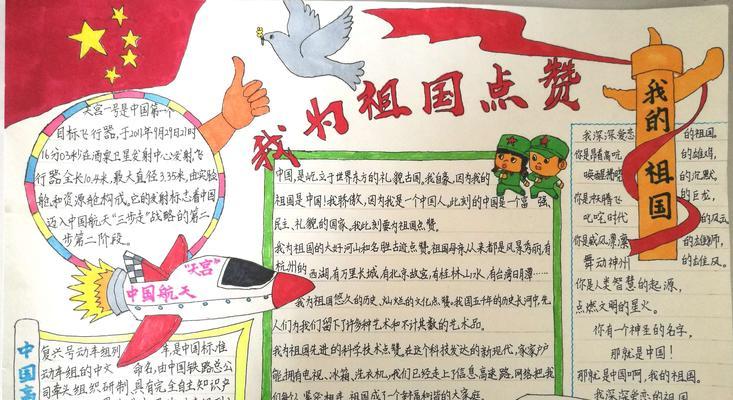 我为祖国点赞
天宫一号是中国第一个
目标飞行器,于2011年9月29日21时
16分03秒在酒泉卫星发射中心发射,飞
行器全长10.4米,最大直径3.35米,由实验
舱和资源舱构成。它的发射标志着中国
迈入中国航天“三步走”战略的第二
步第二阶段。
“天宫”
中国航天
中国高
复兴号动车组列车,是中国标准
动车组的中文命名,由中国铁路总公
司牵头组织研制,具有完全自主知识产
中国,是屹立于世界东方的礼貌古国。我自豪,因为我的
祖国是中国!我骄傲,因为我是一个中国人。此刻的中国是个富强、
民主、礼貌的国家,我此刻要为祖国点赞。
我为祖国的大好河山和名胜古迹点赞。祖国母亲从来都是风景秀丽,有
杭州的西湖,有万里长城,有北京故宫,有桂林山水,有台湾日潭……
我为祖国悠久的历史、灿烂的文化点赞。我国五千年的历史长河中,先
人们为我们留下了许多种艺术和不计其数的艺术品。
我为祖国先进的科学技术点赞。在这个科技发达的新现代,家家户户
能拥有电视、冰箱、洗衣机,我们已经走上了信息高速路,网络把我
祖国成了一个和谐的大家庭。
我的祖国
我深深爱恋的祖国。
你是昂首高吭的雄鸡,
唤醒拂晓的沉默
你是冲天腾飞的巨龙,
叱咤时代的风云
你是威风凛凛的雄狮,
舞动神州的雄风。
你是人类智慧的起源,
点燃文明的星火。
你有一个神圣的名字,
那就是中国!
那就是中国啊,我的祖国。
我深深爱恋的祖国